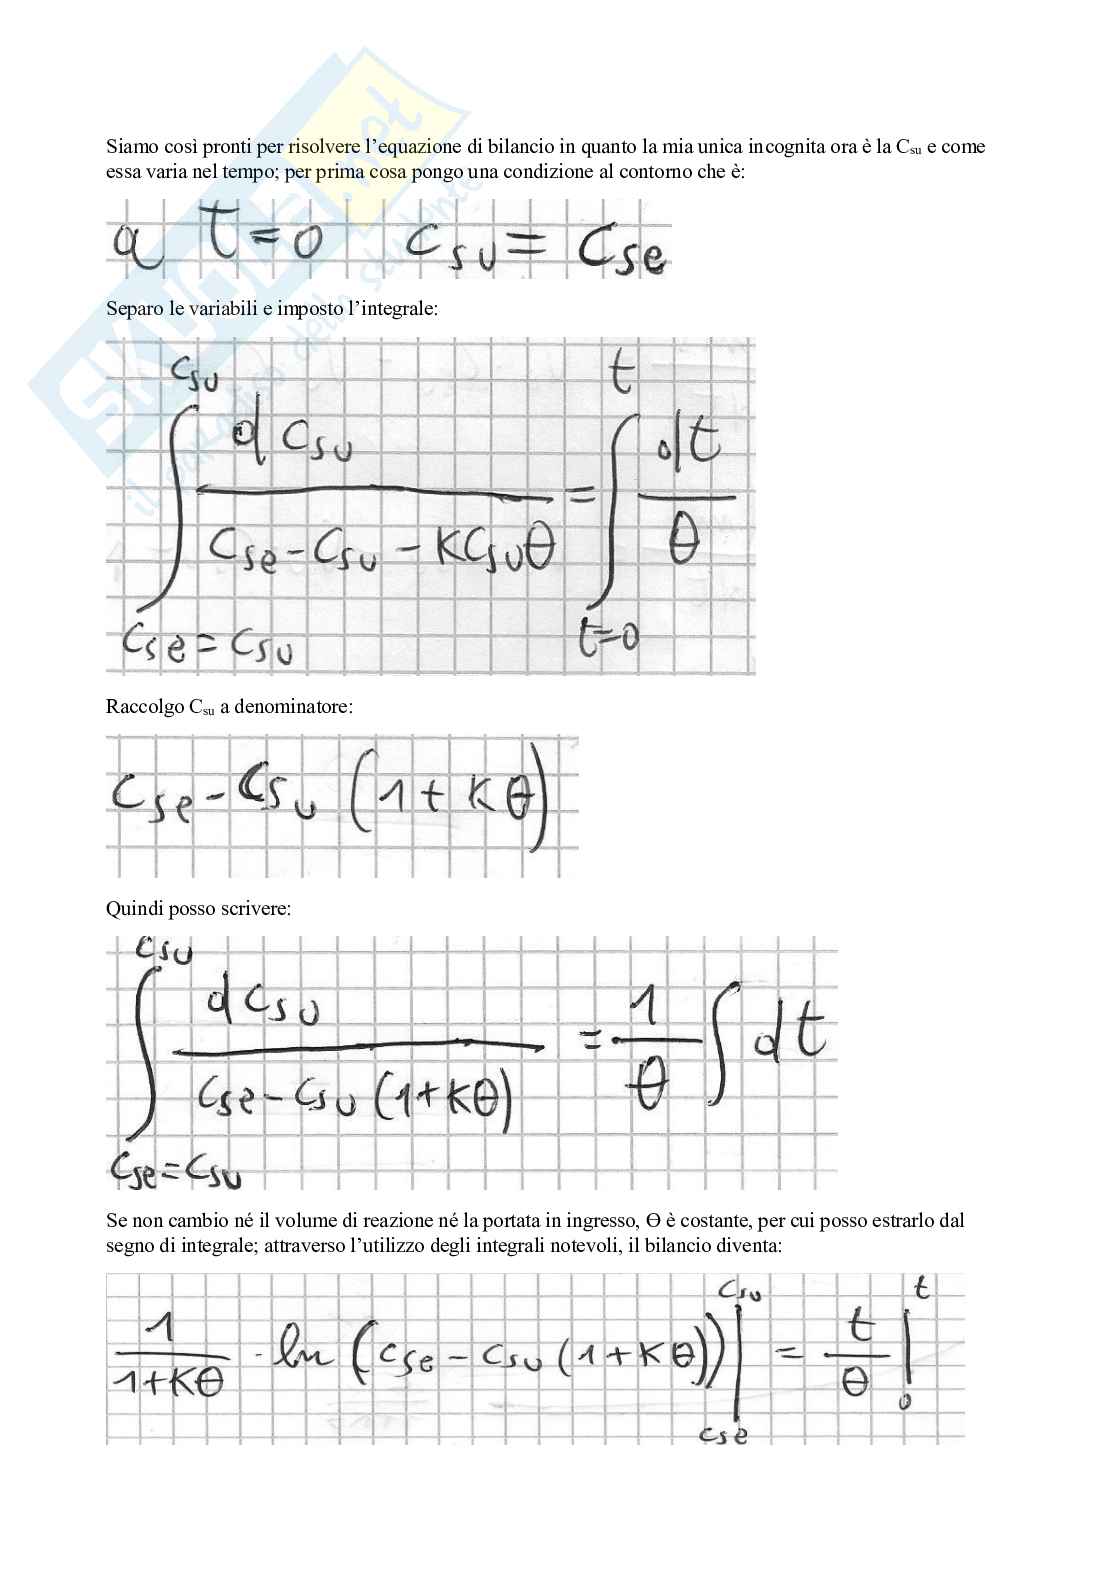 Siamo così pronti per risolvere l'equazione di bilancio in quanto la mia unica incognita ora è la Csu e come
essa varia nel tempo; per prima cosa pongo una condizione al contorno che è:
a t=0 Csu = Cse
Separo le variabili e imposto l'integrale:
∫_{Cse=Csu}^{Csu} dCsu / (Cse - Csu - KCsuθ) = ∫_{t=0}^{t} dt / θ
Raccolgo Csu a denominatore:
Cse - Csu (1+Kθ)
Quindi posso scrivere:
∫_{Cse=Csu}^{Csu} dCsu / (Cse - Csu (1+Kθ)) = 1/θ ∫ dt
Se non cambio né il volume di reazione né la portata in ingresso, Ɵ è costante, per cui posso estrarlo dal
segno di integrale; attraverso l'utilizzo degli integrali notevoli, il bilancio diventa:
1/(1+Kθ) · ln (Cse - Csu (1+Kθ)) |_{Cse}^{Csu} = t/θ |_{0}^{t}
SKUOLA.net
il paradiso dello studente